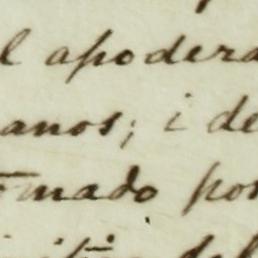 l apodera
anos; i de
omado por
del